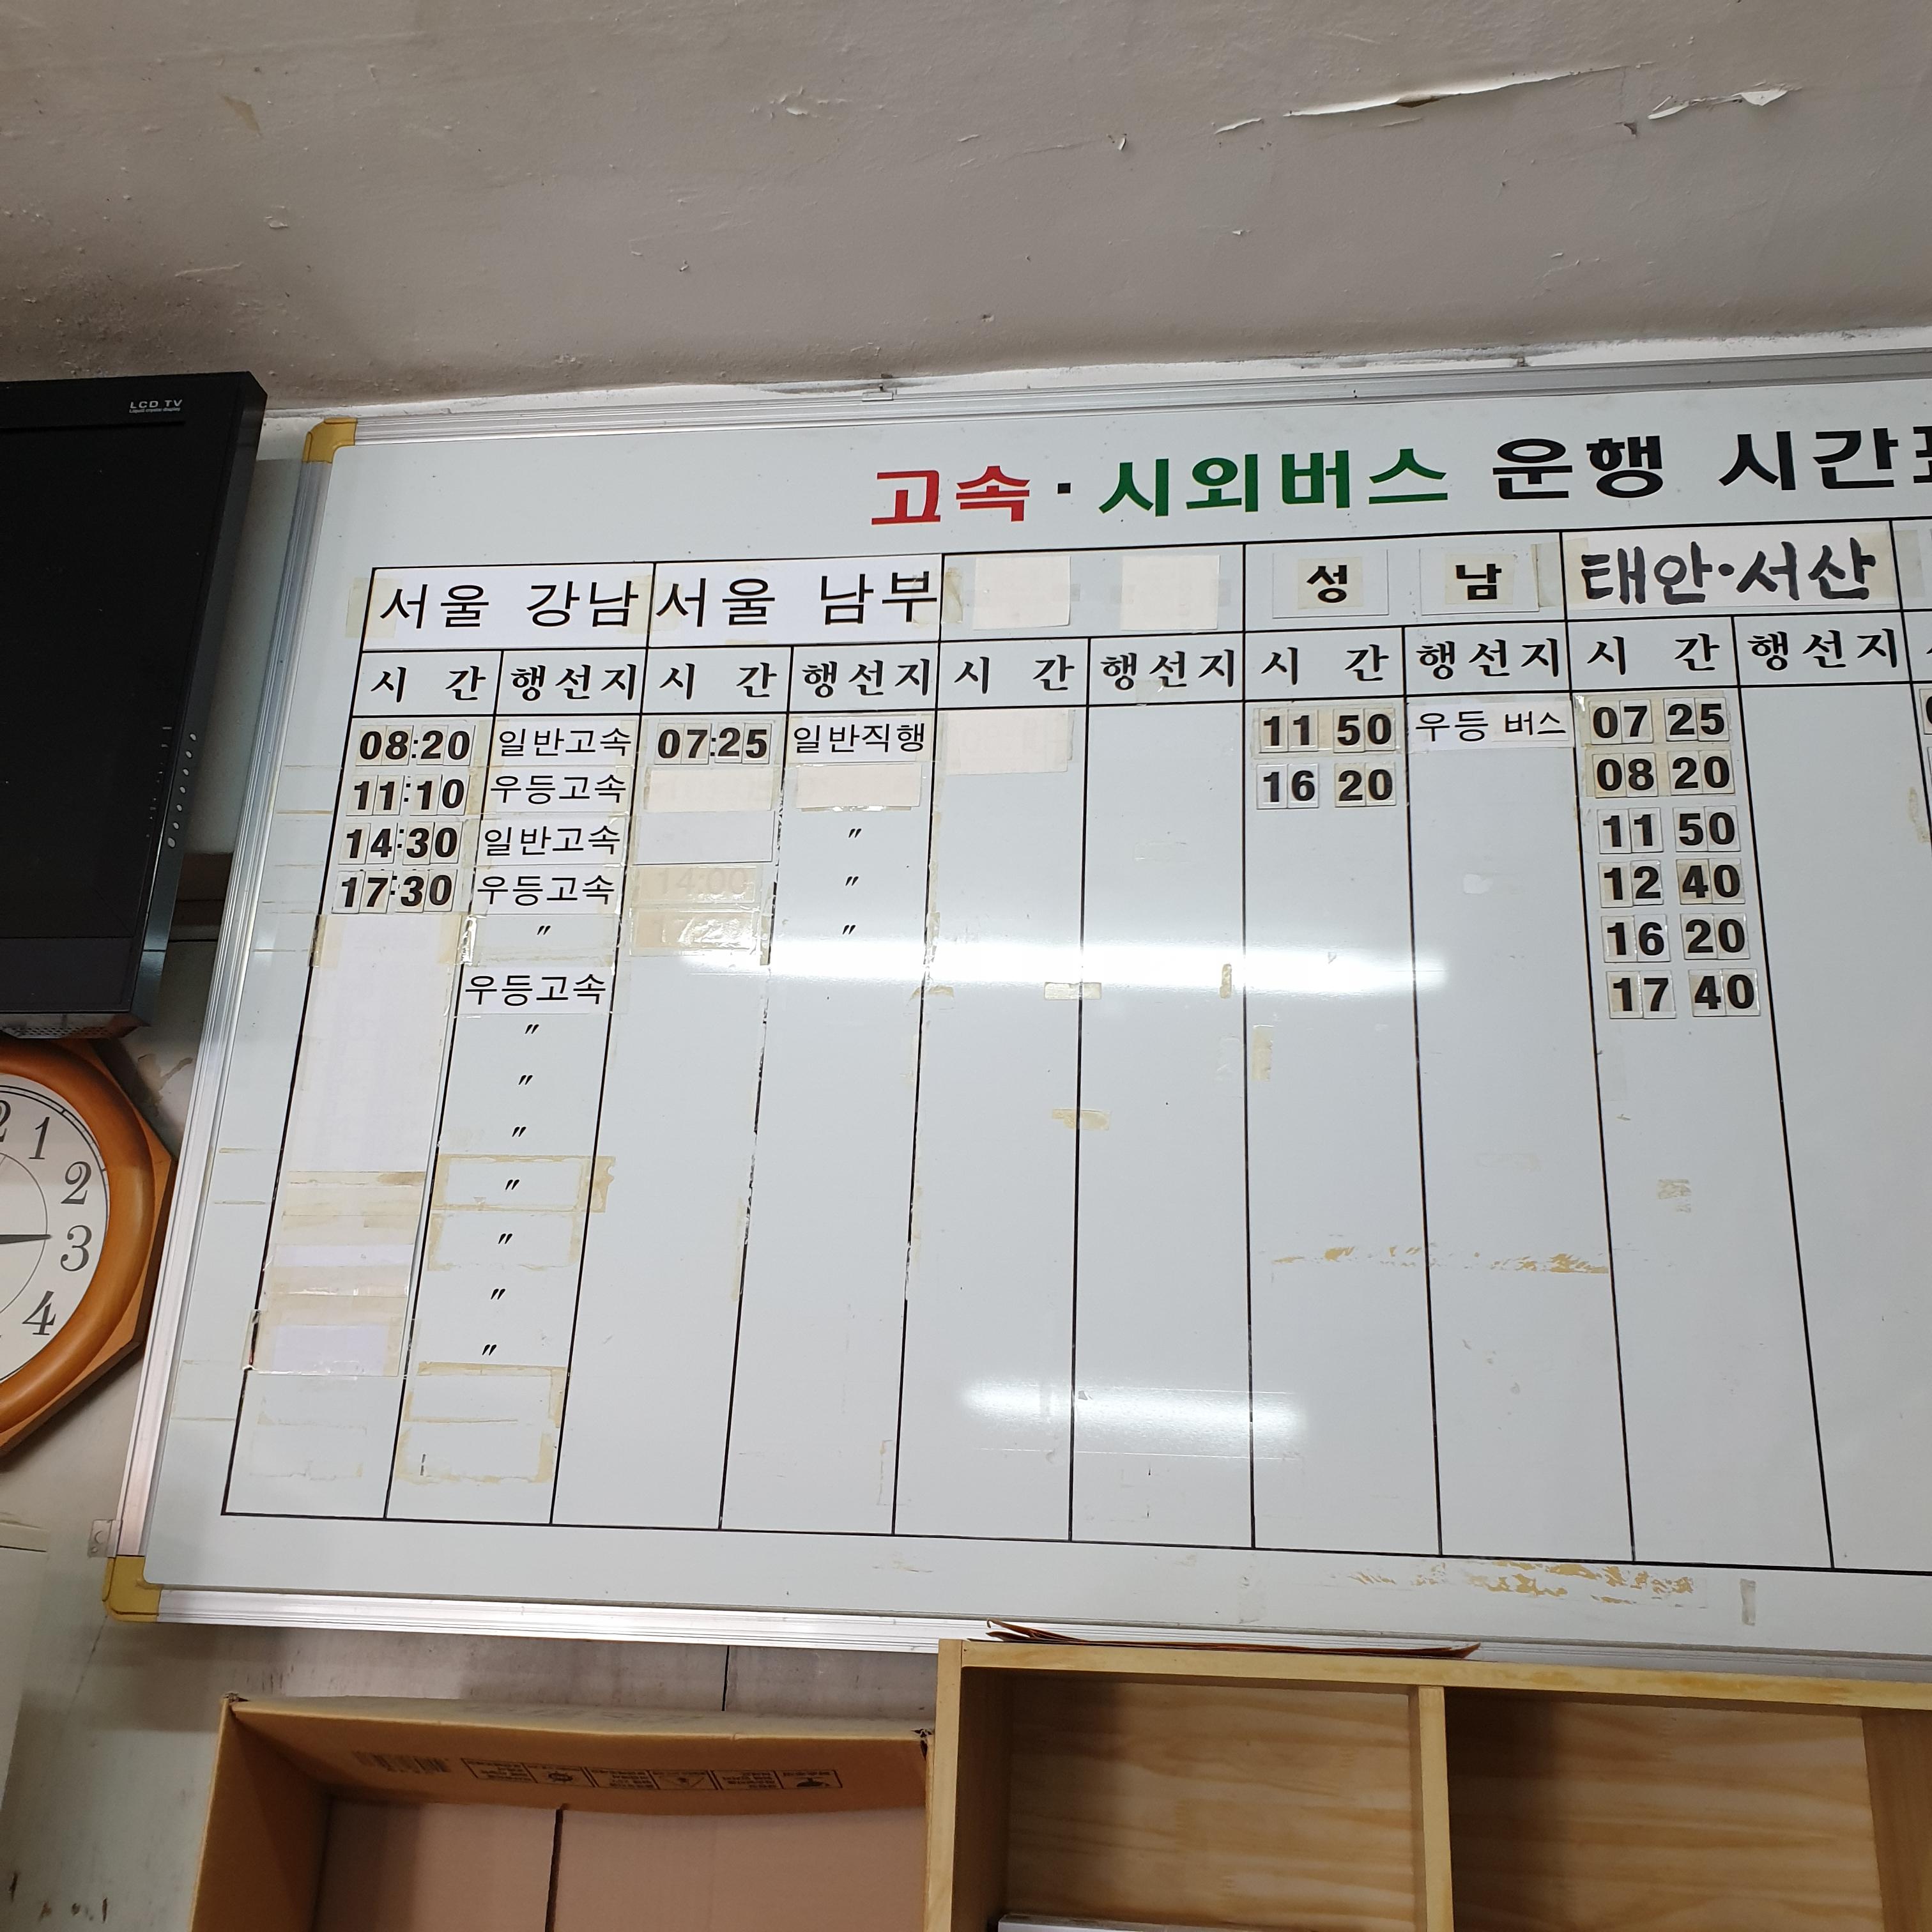 LCD TV
고속·시외버스 운행 시간표
서울 강남 서울 남부 성 남 태안·서산
시 간 행선지 시 간 행선지 시 간 행선지 시 간 행선지 시 간 행선지
08:20 일반고속 07:25 일반직행 11 50 우등 버스 07 25
11:10 우등고속 16 20 08 20
14:30 일반고속 〃 11 50
17:30 우등고속 14:00 〃 12 40
〃 〃 16 20
우등고속 17 40
〃
〃
〃
〃
〃
〃
〃
2
1
2
3
4